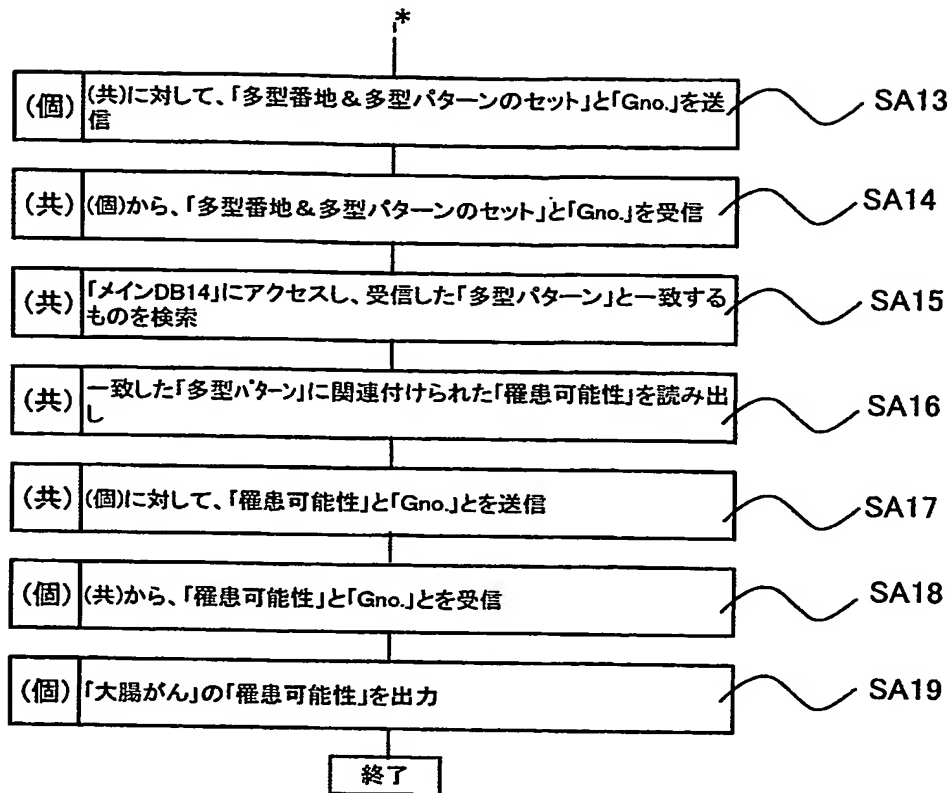 *
(個) (共)に対して、「多型番地＆多型パターンのセット」と「Gno.」を送
信
SA13
(共) (個)から、「多型番地＆多型パターンのセット」と「Gno.」を受信
SA14
(共) 「メインDB14」にアクセスし、受信した「多型パターン」と一致する
ものを検索
SA15
(共) 一致した「多型パターン」に関連付けられた「罹患可能性」を読み出
し
SA16
(共) (個)に対して、「罹患可能性」と「Gno.」とを送信
SA17
(個) (共)から、「罹患可能性」と「Gno.」とを受信
SA18
(個) 「大腸がん」の「罹患可能性」を出力
SA19
終了